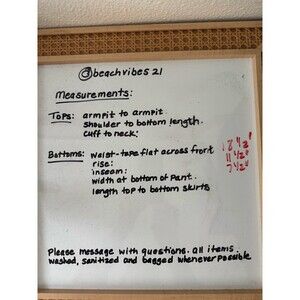 @beachvibes21
Measurements:
Tops: armpit to armpit
shoulder to bottom length.
cuff to neck:
Bottoms: waist-tape flat across front 18 1/2"
rise: 11 1/2"
inseam: 7 1/2"
width at bottom of pant.
length top to bottom skirts
Please message with questions. all items
washed, sanitized and bagged whenever possible